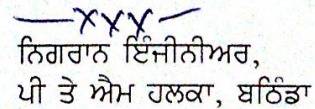 —xxx—
ਨਿਗਰਾਨ ਇੰਜੀਨੀਅਰ,
ਪੀ ਤੇ ਐਮ ਹਲਕਾ, ਬਠਿੰਡਾ